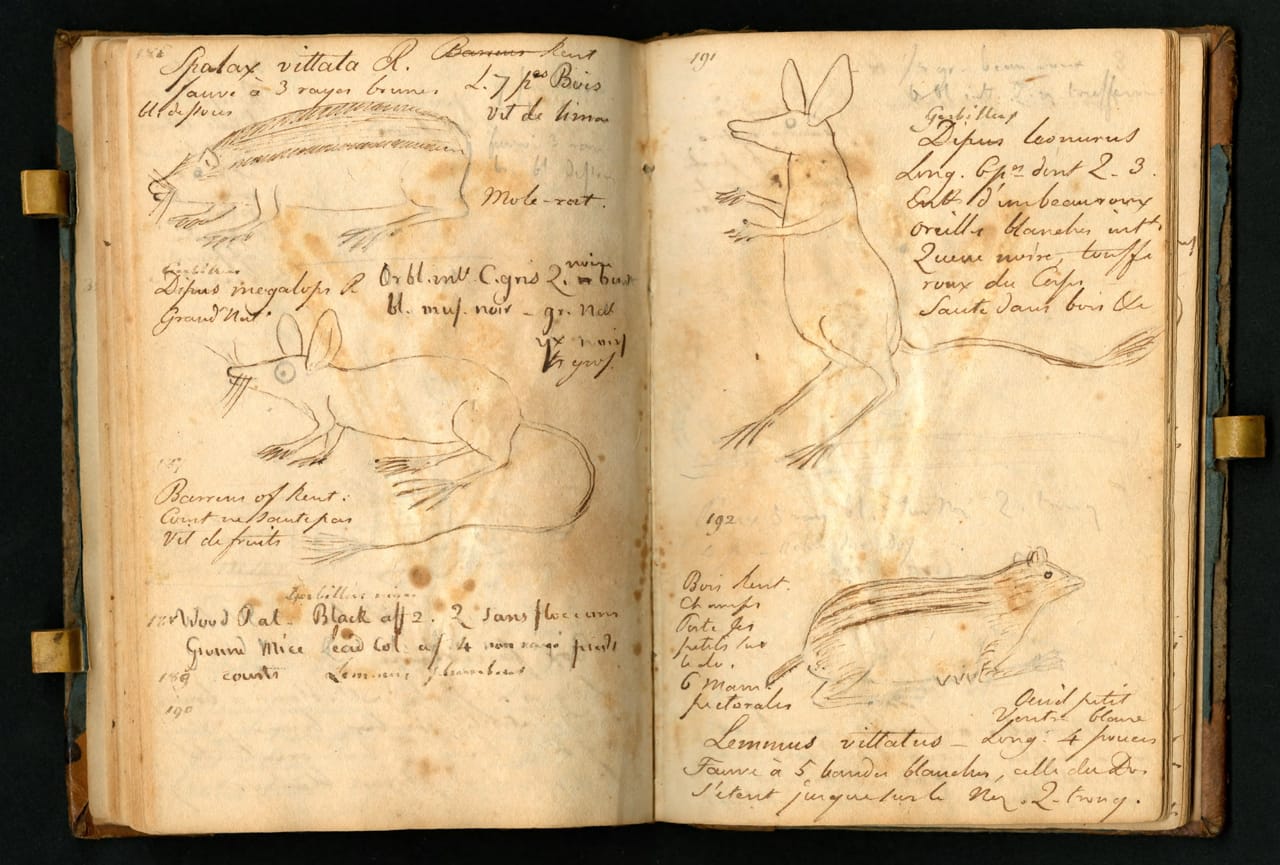 Spalax vittata R. Barrens Kent
fauve à 3 rayes brunes L. 7 pes Bois
bl. dessous
vit de limon
Mole-rat.
Gerbillus
Dipus megalops R Or bl. int C. gris Q. noire
Grand
bl. mus. noir - gr.
yx noirs
gros.
187
Barrens of Kent:
Court ne saute pas
Vit de fruits
Gerbillus
188 Wood Rat. Black aff 2. Q sans flocons
Ground Mice lead Col. aff. 4 pieds
189 courts Lemmus
190
191
Gerbillus
Dipus leonurus
Long. 6 pes dont Q. 3.
Ent d'un beau roux
oreilles blanches intt
Queue noire, touffe
roux du Corps
Saute dans bois &c
192
Bois Kent.
Champs
Porte les
petits sur
le do.
6 Mam.
pectorales
Oeuil petit
Ventre blanc
Lemmus vittatus - Long: 4 pouces
Fauve à 5 bandes blanches, celle du Dos
s'étent jusque sur le Nez. Q- tronq.